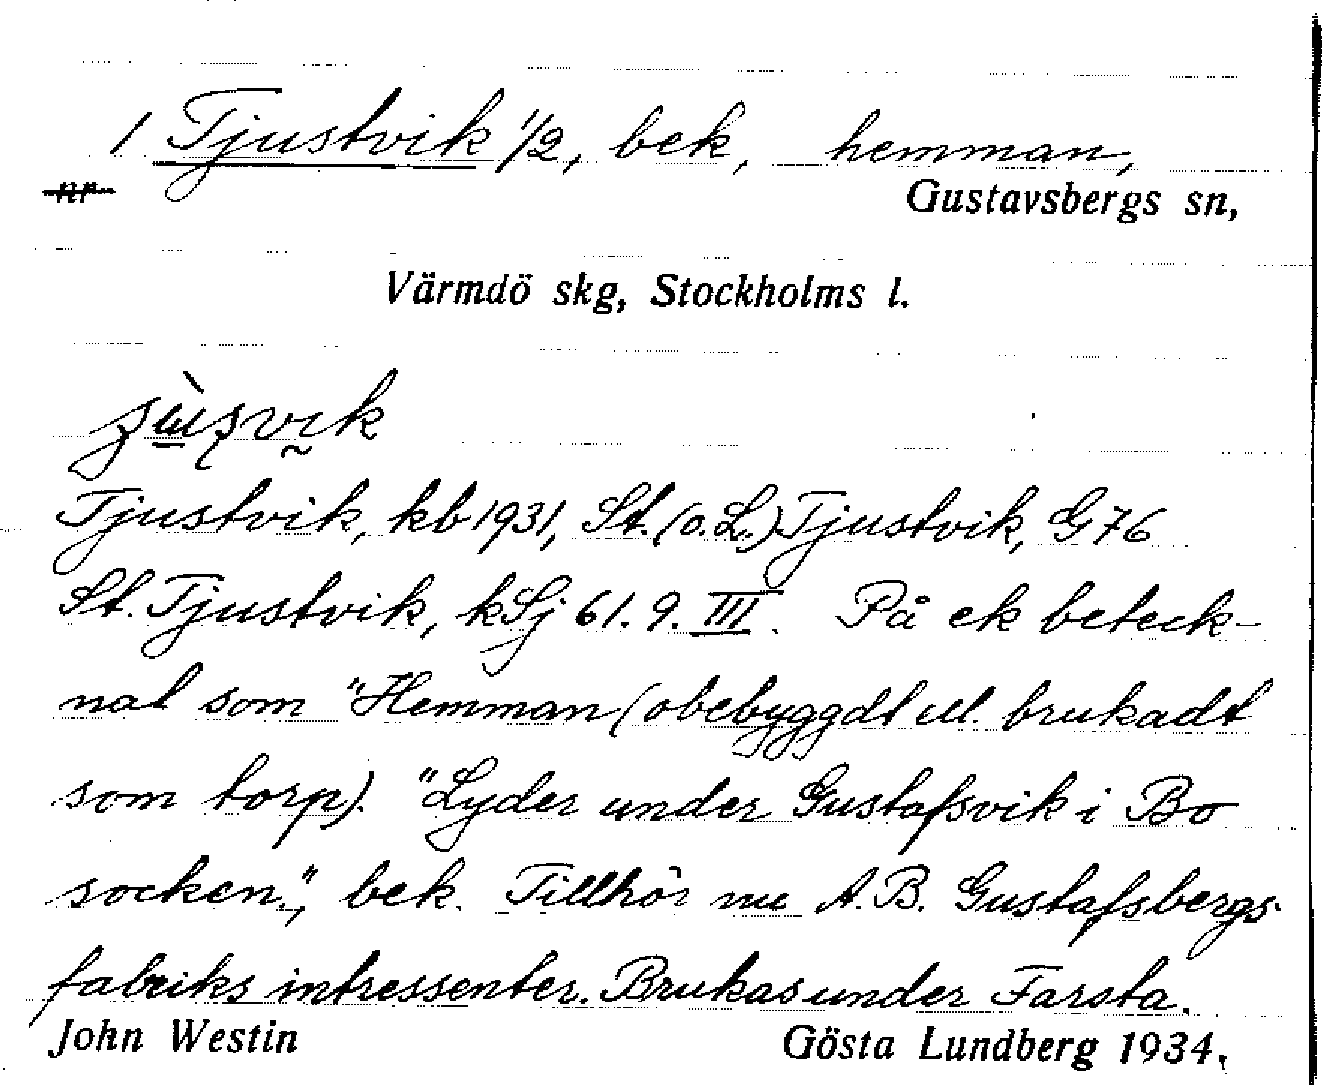 1 Tjustvik 1/2, bek, hemman,
Gustavsbergs sn,
Värmdö skg, Stockholms l.
Tjustvik, kb 1931, St. (o. L.) Tjustvik, G 76
St. Tjustvik, kSj 61. 9. III. På ek beteck-
nat som "Hemman (obebyggdt ell. brukadt
som torp). "Lyder under Gustafsvik i Bo
socken", bek. Tillhör nu A.B. Gustafsbergs-
fabriks intressenter. Brukas under Farsta.
John Westin Gösta Lundberg 1934,